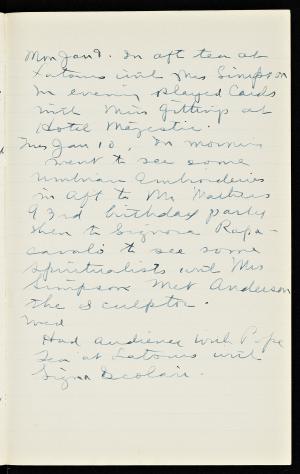 Mon Jan 9. In aft tea at
Latours with Mrs Simpson
In evening played Cards
with Miss Gittings at
Hotel Majestic.
Tues Jan 10, In morning
went to see some
Umbrian Embroideries
in aft to Mr
93rd birthday party
then to Signora Rapa-
cavoli to see some
Spiritualists with Mrs
Simpson Met Anderson
the Sculptor.
Wed
Had audience with Pope
Tea at Latours with
Signa Scolari.